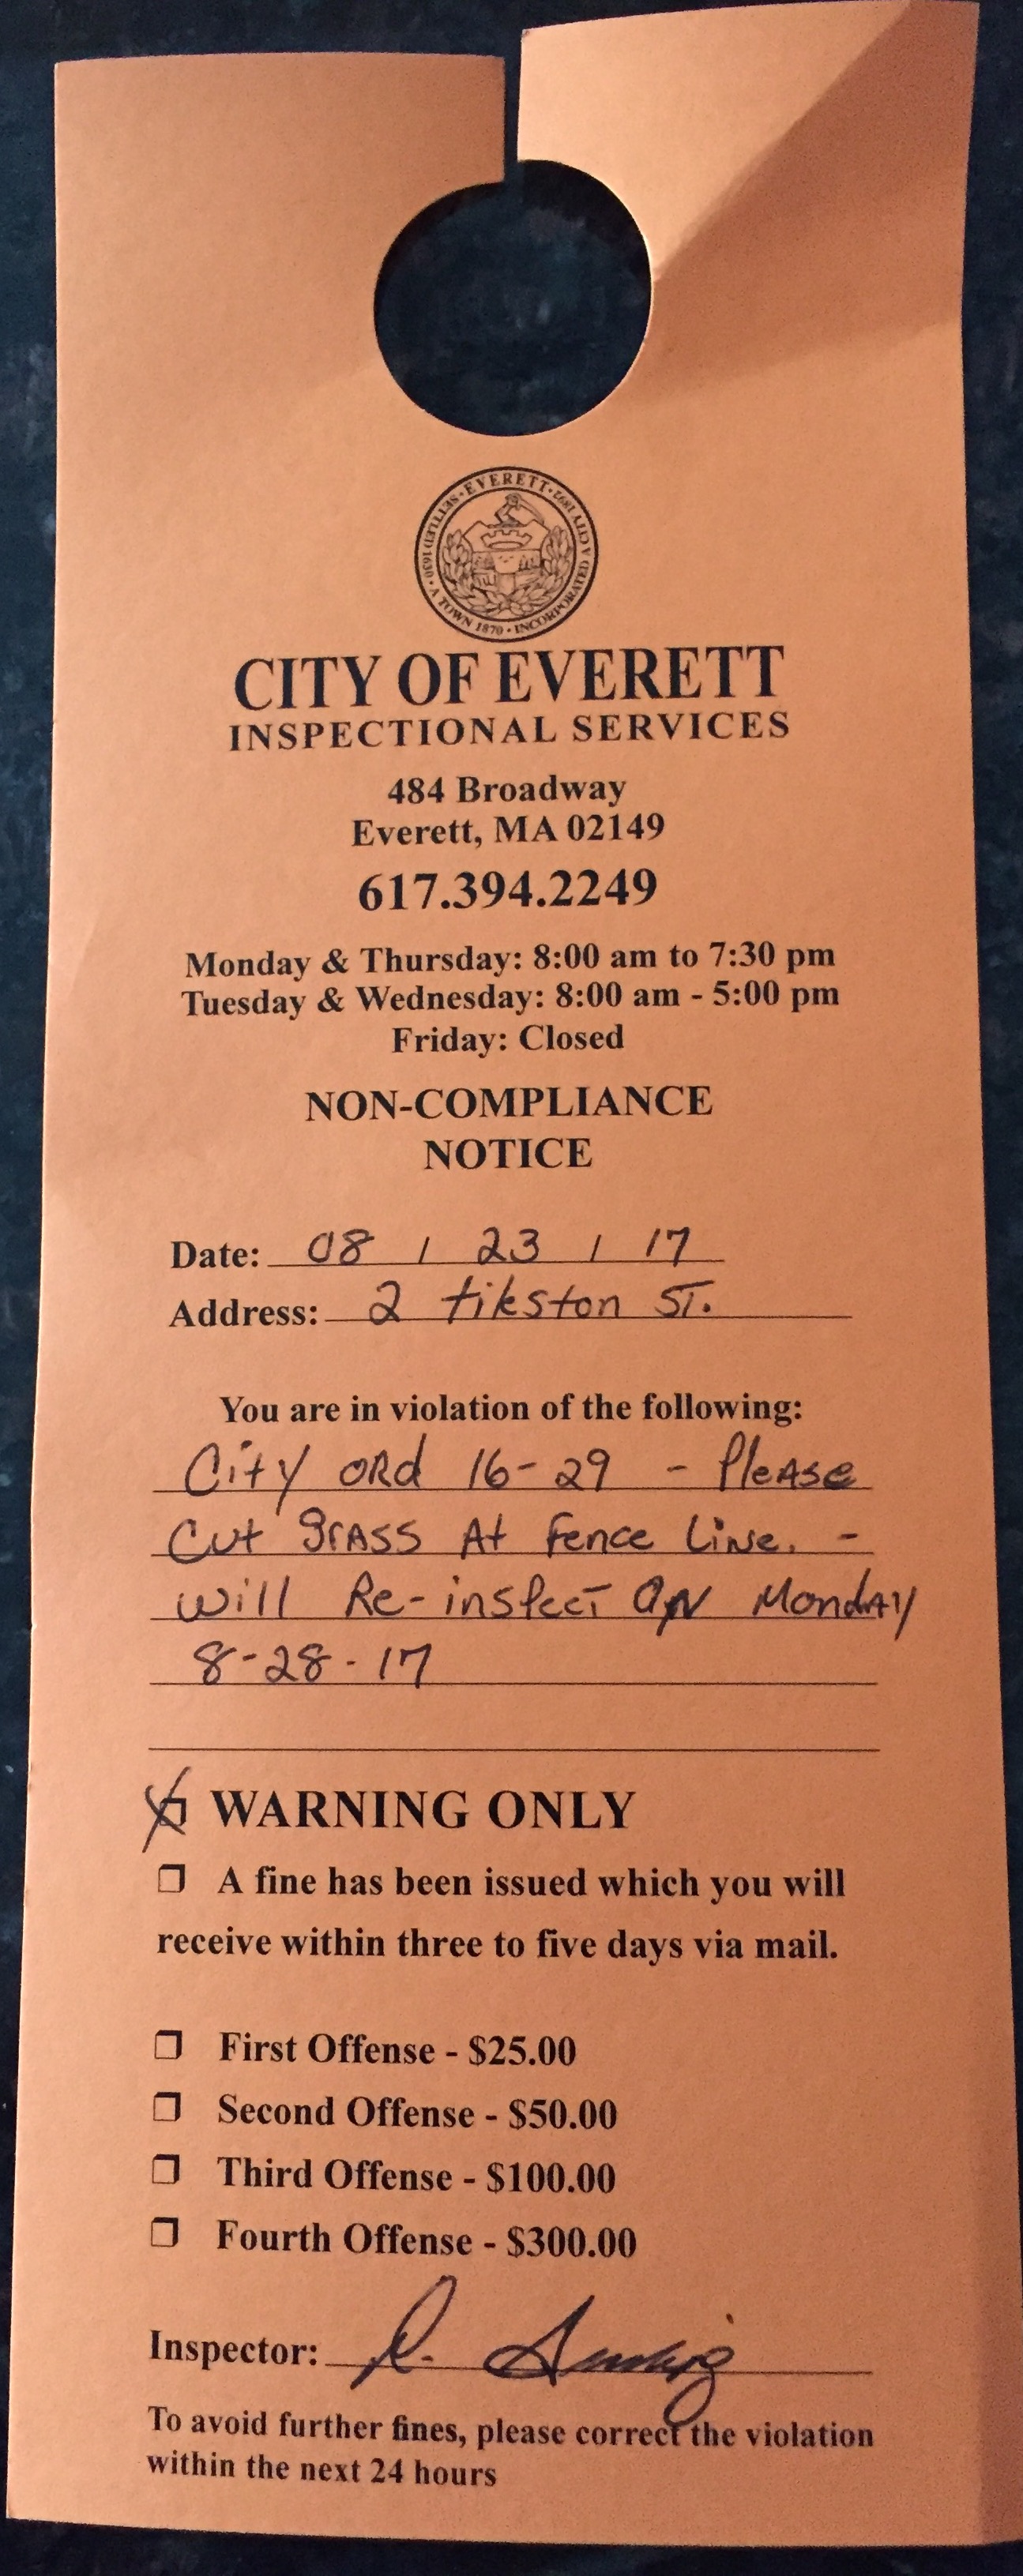 SETTLED 1630 · EVERETT · A CITY 1892
A TOWN 1870 · INCORPORATED
CITY OF EVERETT
INSPECTIONAL SERVICES
484 Broadway
Everett, MA 02149
617.394.2249
Monday & Thursday: 8:00 am to 7:30 pm
Tuesday & Wednesday: 8:00 am - 5:00 pm
Friday: Closed
NON-COMPLIANCE
NOTICE
Date: 08 / 23 / 17
Address: 2 tikston ST.
You are in violation of the following:
City ORd 16-29 - PleAse
Cut grASS At Fence LiNe. -
will Re-inspect ON MondAy
8-28-17
WARNING ONLY
A fine has been issued which you will
receive within three to five days via mail.
First Offense - $25.00
Second Offense - $50.00
Third Offense - $100.00
Fourth Offense - $300.00
Inspector: R.
To avoid further fines, please correct the violation
within the next 24 hours